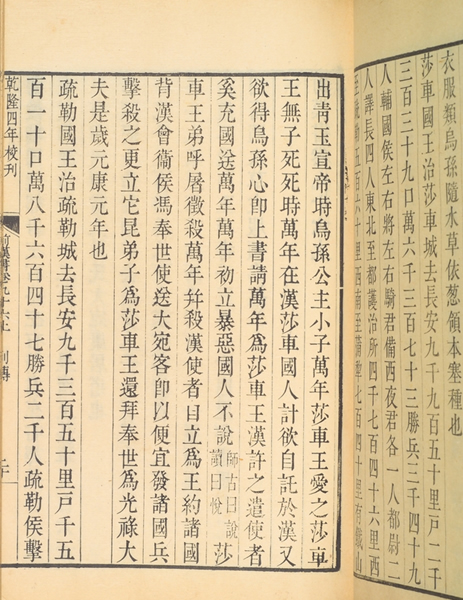 衣服類烏孫隨水草依葱領本塞種也
莎車國王治莎車城去長安九千九百五十里戶二千
三百三十九口萬六千三百七十三勝兵三千四十九
人輔國侯左右將左右騎君備西夜君各一人都尉二
人譯長四人東北至都護治所四千七百四十六里西
至疏勒五百六十里西南至蒲犁七百四十里有鐵山
出青玉宣帝時烏孫公主小子萬年莎車王愛之莎車
王無子死死時萬年在漢莎車國人計欲自託於漢又
欲得烏孫心卽上書請萬年爲莎車王漢許之遣使者
奚充國送萬年萬年初立暴惡國人不說師古曰說讀曰悅莎
車王弟呼屠徵殺萬年幷殺漢使者自立爲王約諸國
背漢會衞侯馮奉世使送大宛客卽以便宜發諸國兵
擊殺之更立它昆弟子爲莎車王還拜奉世爲光祿大
夫是歲元康元年也
疏勒國王治疏勒城去長安九千三百五十里戶千五
百一十口萬八千六百四十七勝兵二千人疏勒侯擊
乾隆四年校刊
前漢書卷九十六上 列傳